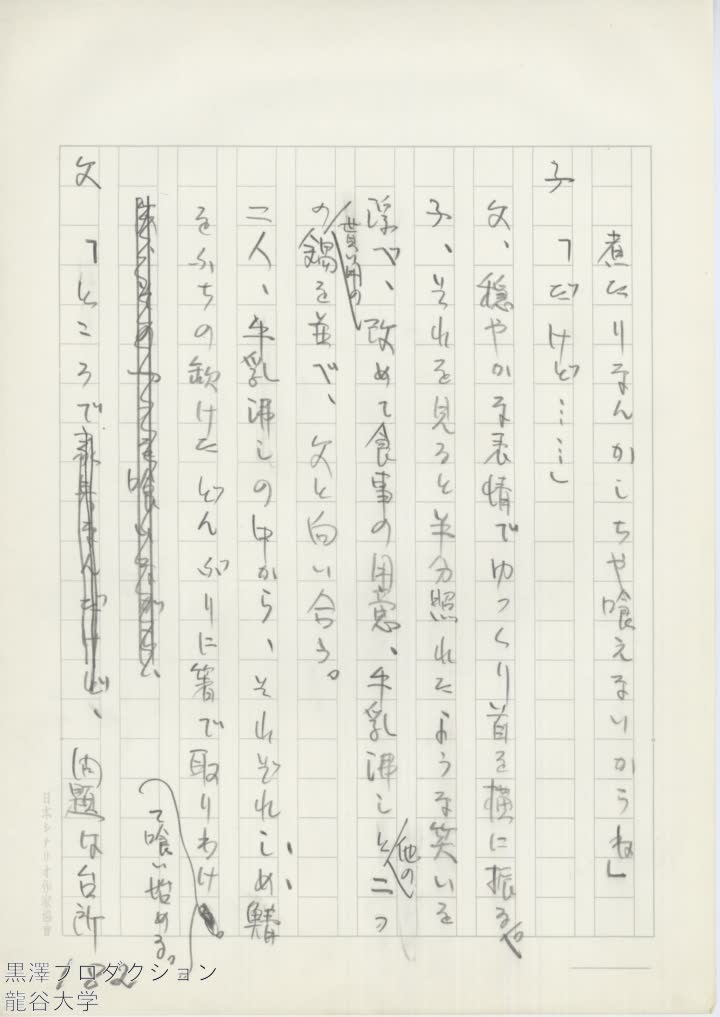 煮たりなんかしちゃ喰えないからね」
子「だけど……」
父、穏やかな表情でゆっくり首を横に振る。
子、それを見ると半分照れたような笑いを
浮べ、改めて食事の用意、牛乳沸しと他の二つ
の貰い用の鍋を並べ、父と向い合う。
二人、牛乳沸しの中から、それぞれしめ鯖
をふちの欠けたどんぶりに箸で取りわけ
て喰い始める。
父「ところで、問題は台所
182
日本シナリオ作家協會
黒澤プロダクション
龍谷大学